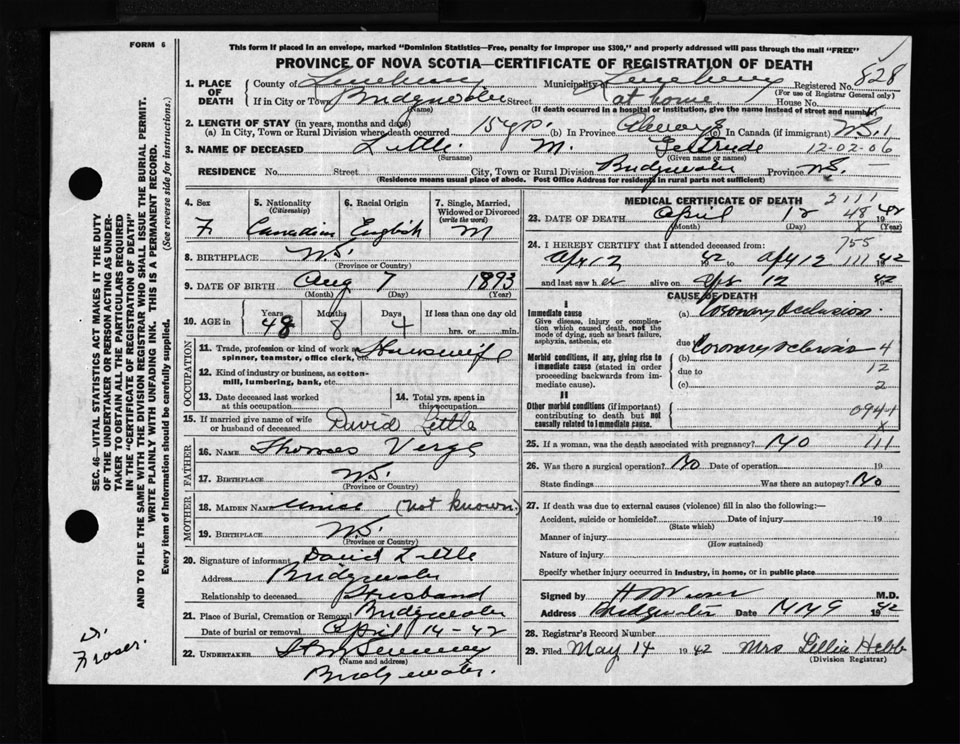 FORM 6
This form if placed in an envelope, marked "Dominion Statistics—Free, penalty for improper use $300," and properly addressed will pass through the mail "FREE"
PROVINCE OF NOVA SCOTIA—CERTIFICATE OF REGISTRATION OF DEATH
828
1. PLACE OF DEATH
County of Lunenburg Municipality Lunenburg Registered No.
(For use of Registrar General only)
If in City or Town Bridgewater Street at home House No.
(Name) (If death occurred in a hospital or institution, give the name instead of street and number)
2. LENGTH OF STAY (in years, months and days)
(a) In City, Town or Rural Division where death occurred 15 yrs. (b) In Province Always (c) In Canada (if immigrant) N.S. 1
3. NAME OF DECEASED Little M. Gertrude 12-02-06
(Surname) (Given name or names)
RESIDENCE No. Street City, Town or Rural Division Bridgewater Province N.S.
(Residence means usual place of abode. Post Office Address for residents in rural parts not sufficient)
4. Sex F
5. Nationality (Citizenship) Canadian
6. Racial Origin English
7. Single, Married, Widowed or Divorced (write the word) M
8. BIRTHPLACE N.S.
(Province or Country)
9. DATE OF BIRTH Aug 7 1893
(Month) (Day) (Year)
10. AGE in Years 48 Months 8 Days 4 If less than one day old hrs. or min.
OCCUPATION
11. Trade, profession or kind of work as spinner, teamster, office clerk, etc. Housewife
12. Kind of industry or business, as cotton-mill, lumbering, bank, etc.
13. Date deceased last worked at this occupation
14. Total yrs. spent in this occupation
15. If married give name of wife or husband of deceased David Little
FATHER
16. NAME Thomas Verge
17. BIRTHPLACE N.S.
(Province or Country)
MOTHER
18. MAIDEN NAME (not known)
19. BIRTHPLACE N.S.
(Province or Country)
20. Signature of informant David Little
Address Bridgewater
Relationship to deceased Husband
21. Place of Burial, Cremation or Removal Bridgewater
Date of burial or removal April 14-42
22. UNDERTAKER
(Name and address)
Bridgewater
MEDICAL CERTIFICATE OF DEATH 2111
23. DATE OF DEATH April 12 48 1942
(Month) (Day) 8 (Year)
755
24. I HEREBY CERTIFY that I attended deceased from:
Apr 12 42 to Apr 12 111 1942
and last saw her alive on Apr 12 42
CAUSE OF DEATH
I
Immediate cause
Give disease, injury or complication which caused death, not the mode of dying, such as heart failure, asphyxia, asthenia, etc
(a) Coronary occlusion
due to
Morbid conditions, if any, giving rise to immediate cause (stated in order proceeding backwards from immediate cause).
(b) Coronary sclerosis 4
due to 12
(c) 2
II
Other morbid conditions (if important) contributing to death but not causally related to immediate cause.
094
x
25. If a woman, was the death associated with pregnancy? No 111
26. Was there a surgical operation? No Date of operation 19
State findings Was there an autopsy? No
27. If death was due to external causes (violence) fill in also the following:—
Accident, suicide or homicide? Date of injury 19
(State which)
Manner of injury
(How sustained)
Nature of injury
Specify whether injury occurred in industry, in home, or in public place
Signed by M.D.
Address Bridgewater Date 1942
28. Registrar's Record Number
29. Filed May 14 1942 Mrs Lillia Hebb
(Division Registrar)
SEC. 46—VITAL STATISTICS ACT MAKES IT THE DUTY
OF THE UNDERTAKER OR PERSON ACTING AS UNDER-
TAKER TO OBTAIN ALL THE PARTICULARS REQUIRED
IN THE "CERTIFICATE OF REGISTRATION OF DEATH"
AND TO FILE THE SAME WITH THE DIVISION REGISTRAR WHO SHALL ISSUE THE BURIAL PERMIT.
WRITE PLAINLY WITH UNFADING INK. THIS IS A PERMANENT RECORD.
Every item of information should be carefully supplied. (See reverse side for instructions.)
Dr.
Fraser.